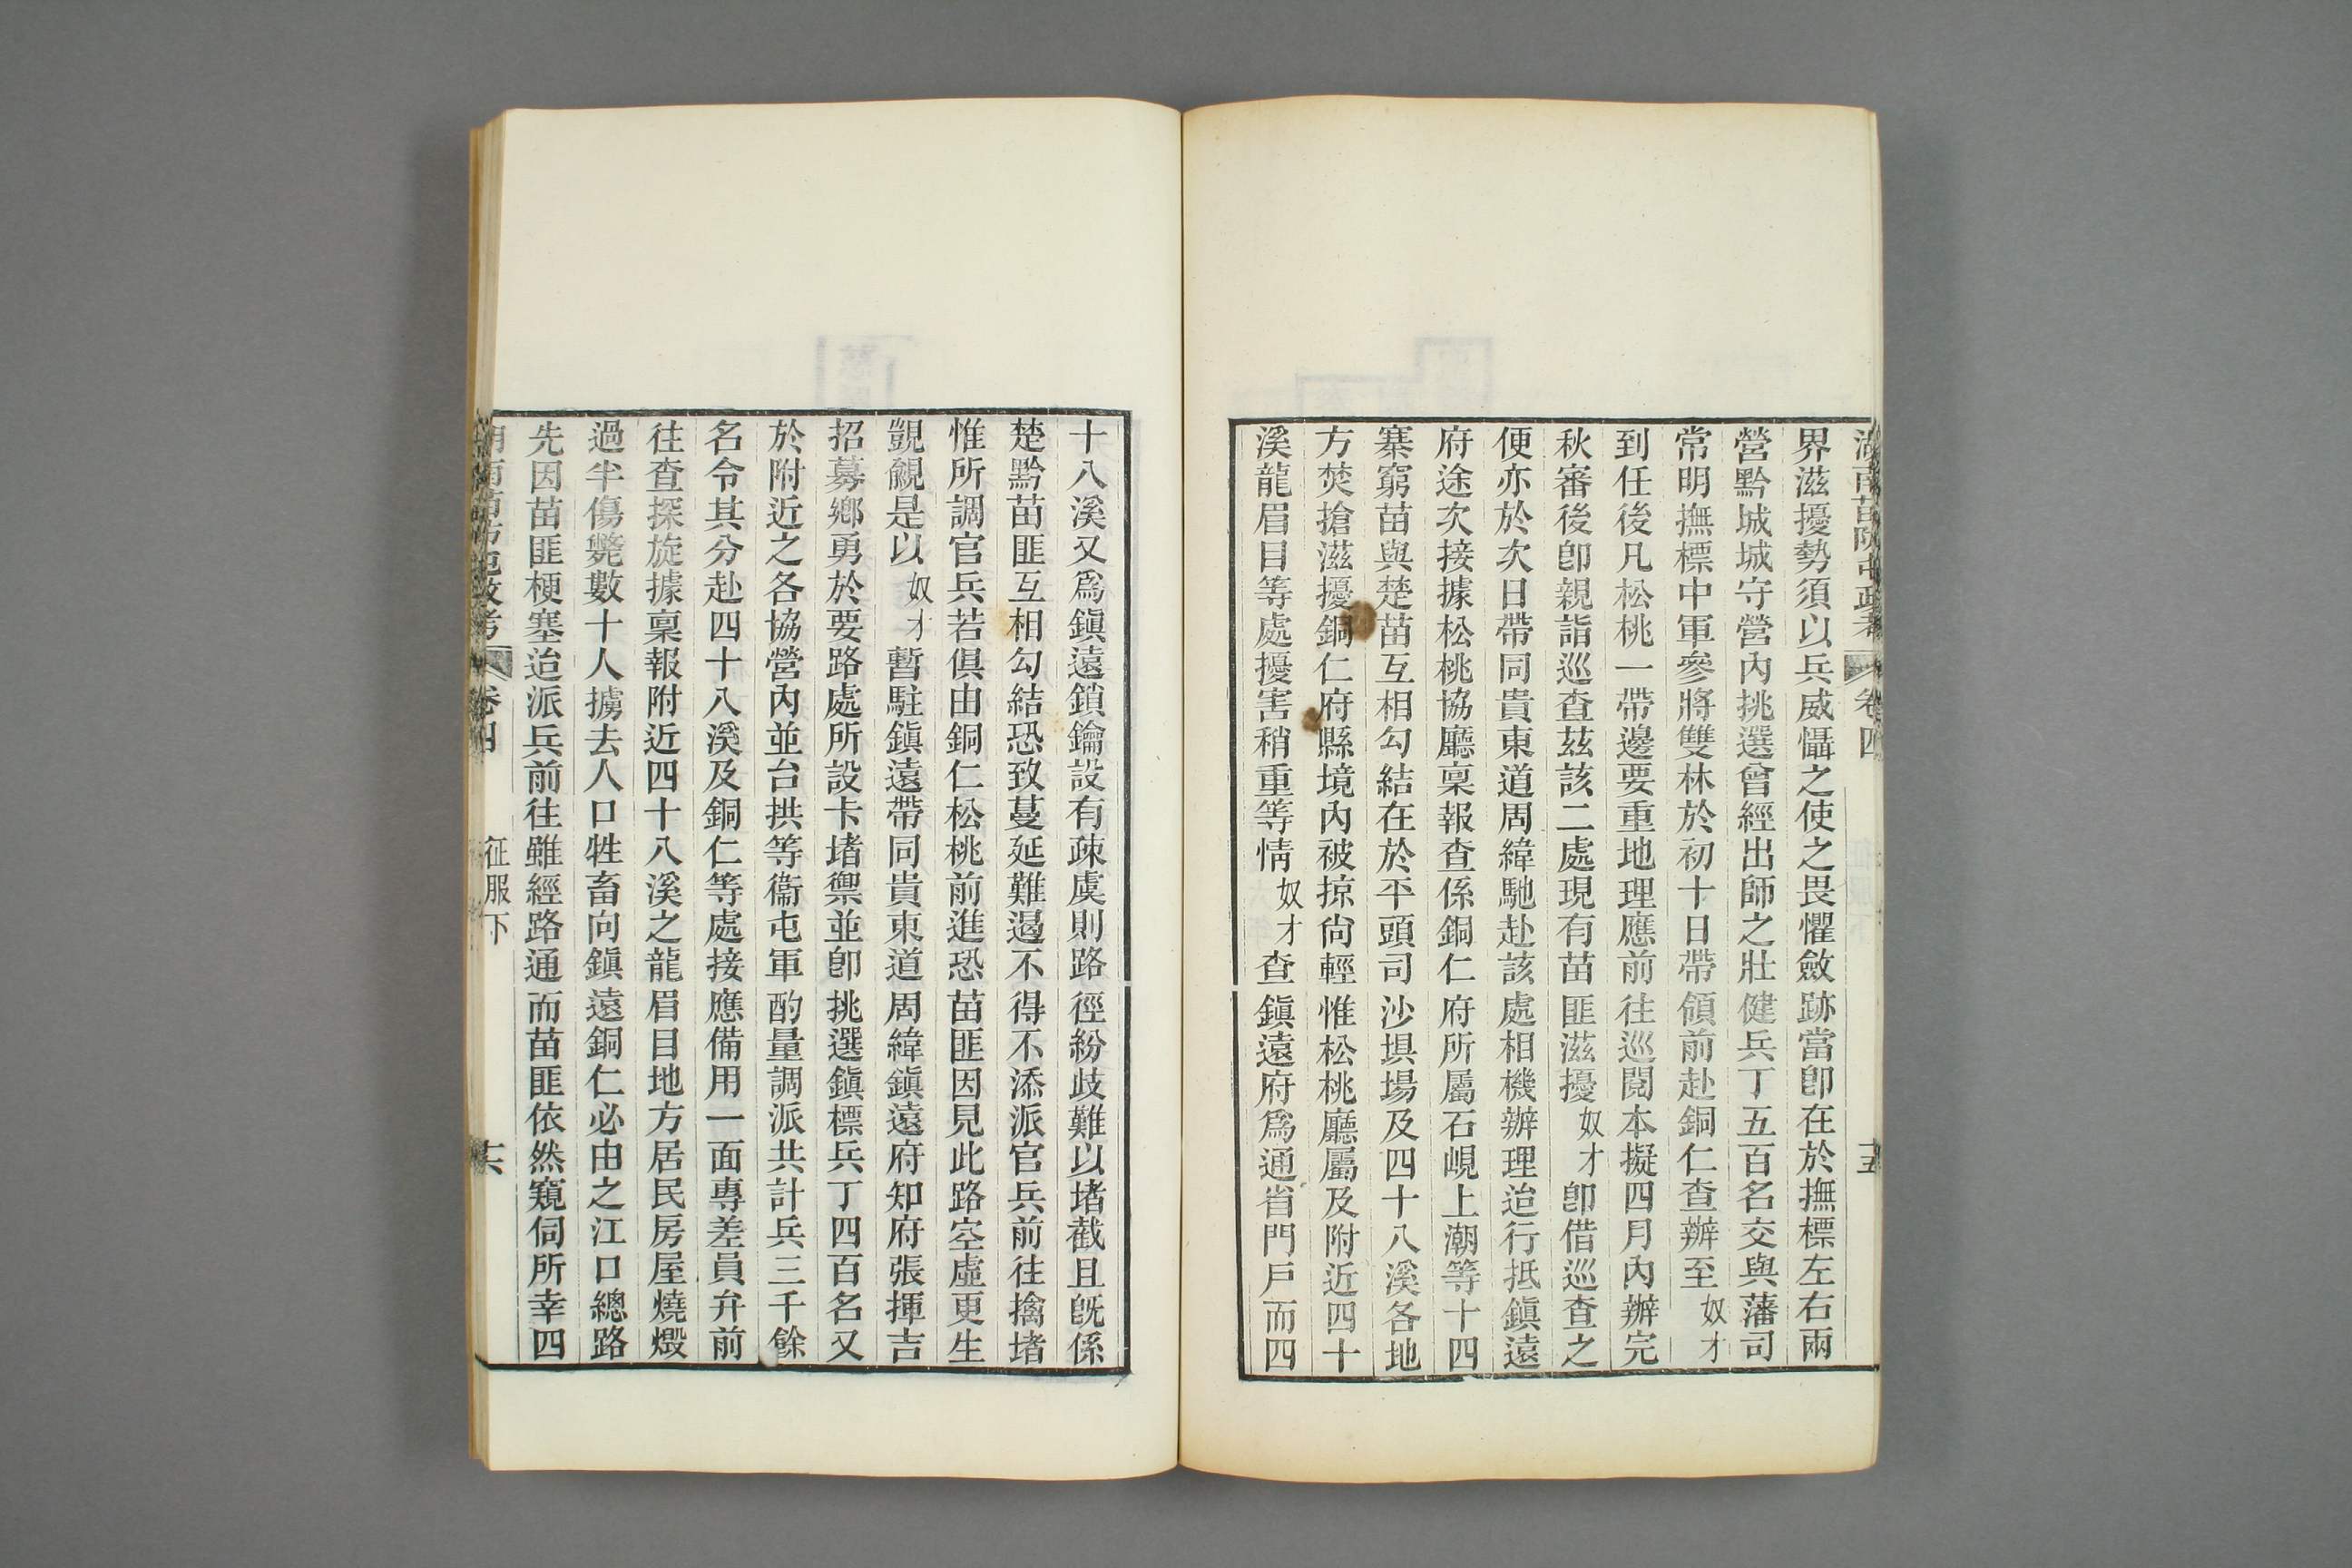 湖南苗防屯政考 卷四 十五
界滋擾勢須以兵威懾之使之畏懼斂跡當卽在於撫標左右兩
營黔城城守營內挑選曾經出師之壯健兵丁五百名交與藩司
常明撫標中軍參將雙林於初十日帶領前赴銅仁查辦至奴才
到任後凡松桃一帶邊要重地理應前往巡閱本擬四月內辦完
秋審後卽親詣巡查茲該二處現有苗匪滋擾奴才卽借巡查之
便亦於次日帶同貴東道周緯馳赴該處相機辦理迨行抵鎭遠
府途次接據松桃協廳稟報查係銅仁府所屬石峴上潮等十四
寨窮苗與楚苗互相勾結在於平頭司沙垻場及四十八溪各地
方焚搶滋擾銅仁府縣境內被掠尙輕惟松桃廳屬及附近四十
溪龍眉目等處擾害稍重等情奴才查鎭遠府爲通省門戶而四
十八溪又爲鎭遠鎖鑰設有疎虞則路徑紛歧難以堵截且旣係
楚黔苗匪互相勾結恐致蔓延難遏不得不添派官兵前往擒堵
惟所調官兵若俱由銅仁松桃前進恐苗匪因見此路空虛更生
覬覦是以奴才暫駐鎭遠帶同貴東道周緯鎭遠府知府張揮吉
招募鄉勇於要路處所設卡堵禦並卽挑選鎭標兵丁四百名又
於附近之各協營內並台拱等衞屯軍酌量調派共計兵三千餘
名令其分赴四十八溪及銅仁等處接應備用一面專差員弁前
往查探旋據稟報附近四十八溪之龍眉目地方居民房屋燒燬
過半傷斃數十人擄去人口牲畜向鎭遠銅仁必由之江口總路
先因苗匪梗塞迨派兵前往雖經路通而苗匪依然窺伺所幸四
湖南苗防屯政考 卷四 征服下 十六